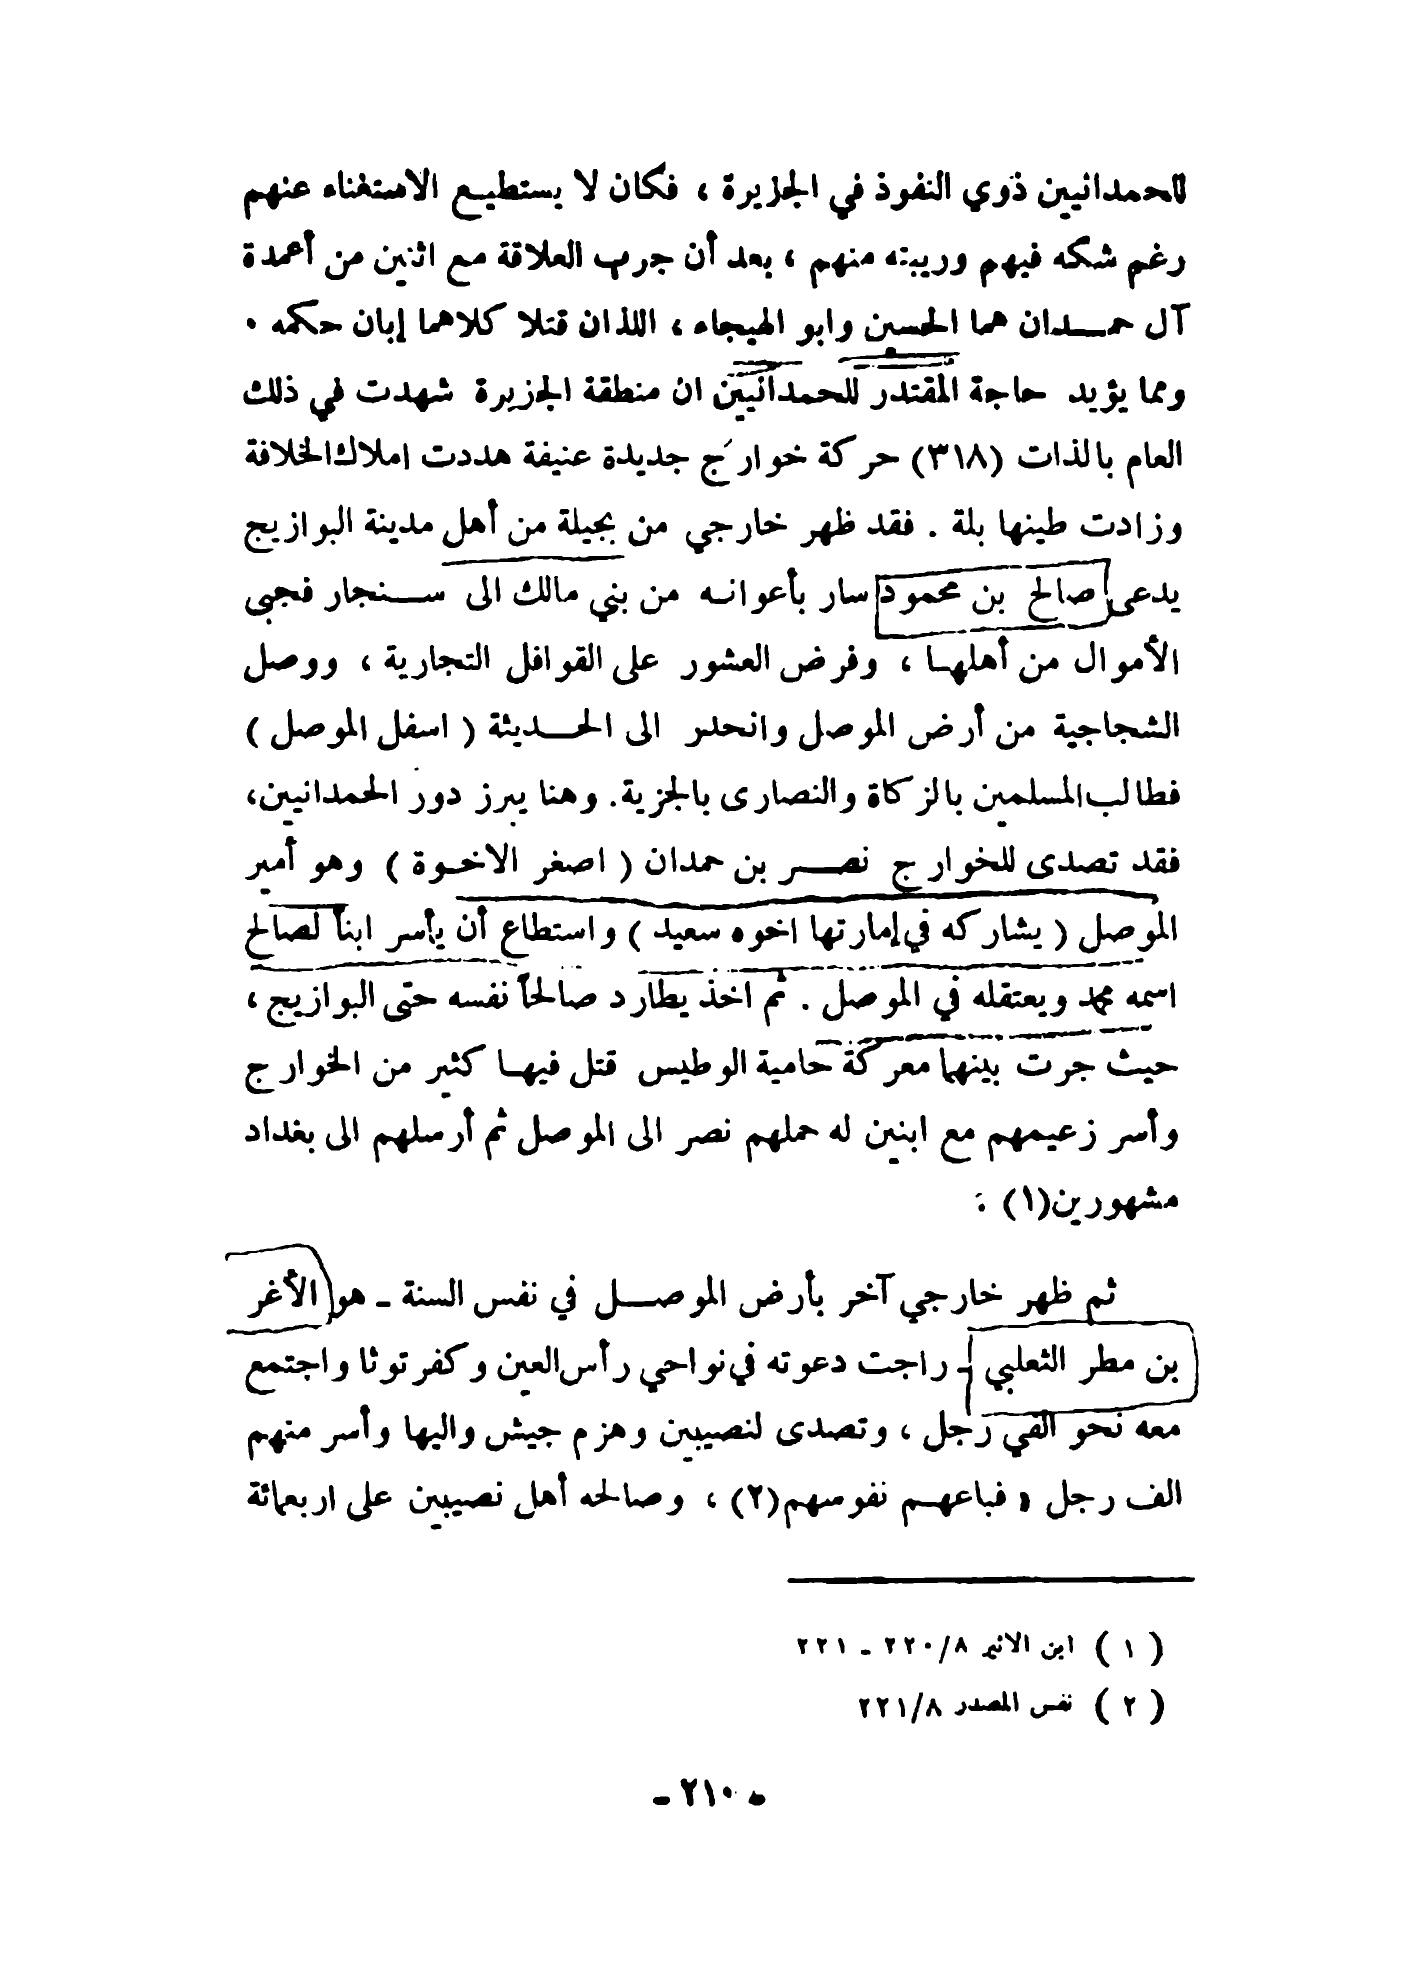 للحمدانيين ذوي النفوذ في الجزيرة ، فكان لا يستطيع الاستغناء عنهم
رغم شكه فيهم وريبته منهم ، بعد أن جرب العلاقة مع اثنين من أعمدة
آل حمدان هما الحسين وابو الهيجاء ، اللذان قتلا كلاهما إبان حكمه .
ومما يؤيد حاجة المقتدر للحمدانيين ان منطقة الجزيرة شهدت في ذلك
العام بالذات (٣١٨) حركة خوارج جديدة عنيفة هددت املاك الخلافة
وزادت طينها بلة . فقد ظهر خارجي من بجيلة من أهل مدينة البوازيج
يدعى صالح بن محمود سار بأعوانه من بني مالك الى سنجار فجبى
الأموال من أهلها ، وفرض العشور على القوافل التجارية ، ووصل
الشجاجية من أرض الموصل وانحدر الى الحديثة ( اسفل الموصل )
فطالب المسلمين بالزكاة والنصارى بالجزية. وهنا يبرز دور الحمدانيين،
فقد تصدى للخوارج نصر بن حمدان ( اصغر الاخوة ) وهو أمير
الموصل ( يشاركه في إمارتها اخوه سعيد ) واستطاع أن يأسر ابناً لصالح
اسمه محمد ويعتقله في الموصل . ثم اخذ يطارد صالحاً نفسه حتى البوازيج ،
حيث جرت بينهما معركة حامية الوطيس قتل فيها كثير من الخوارج
وأسر زعيمهم مع ابنين له حملهم نصر الى الموصل ثم أرسلهم الى بغداد
مشهورين(١) .
ثم ظهر خارجي آخر بأرض الموصل في نفس السنة ـ هو الأغر
بن مطر الثعلبي ـ راجت دعوته في نواحي رأس العين وكفرتوثا واجتمع
معه نحو الفي رجل ، وتصدى لنصيبين وهزم جيش واليها وأسر منهم
الف رجل « فباعهم نفوسهم(٢) ، وصالحه أهل نصيبين على اربعمائة
( ١ ) ابن الاثير ٢٢٠/٨ ـ ٢٢١
( ٢ ) نفس المصدر ٢٢١/٨
- ٢١٠ -